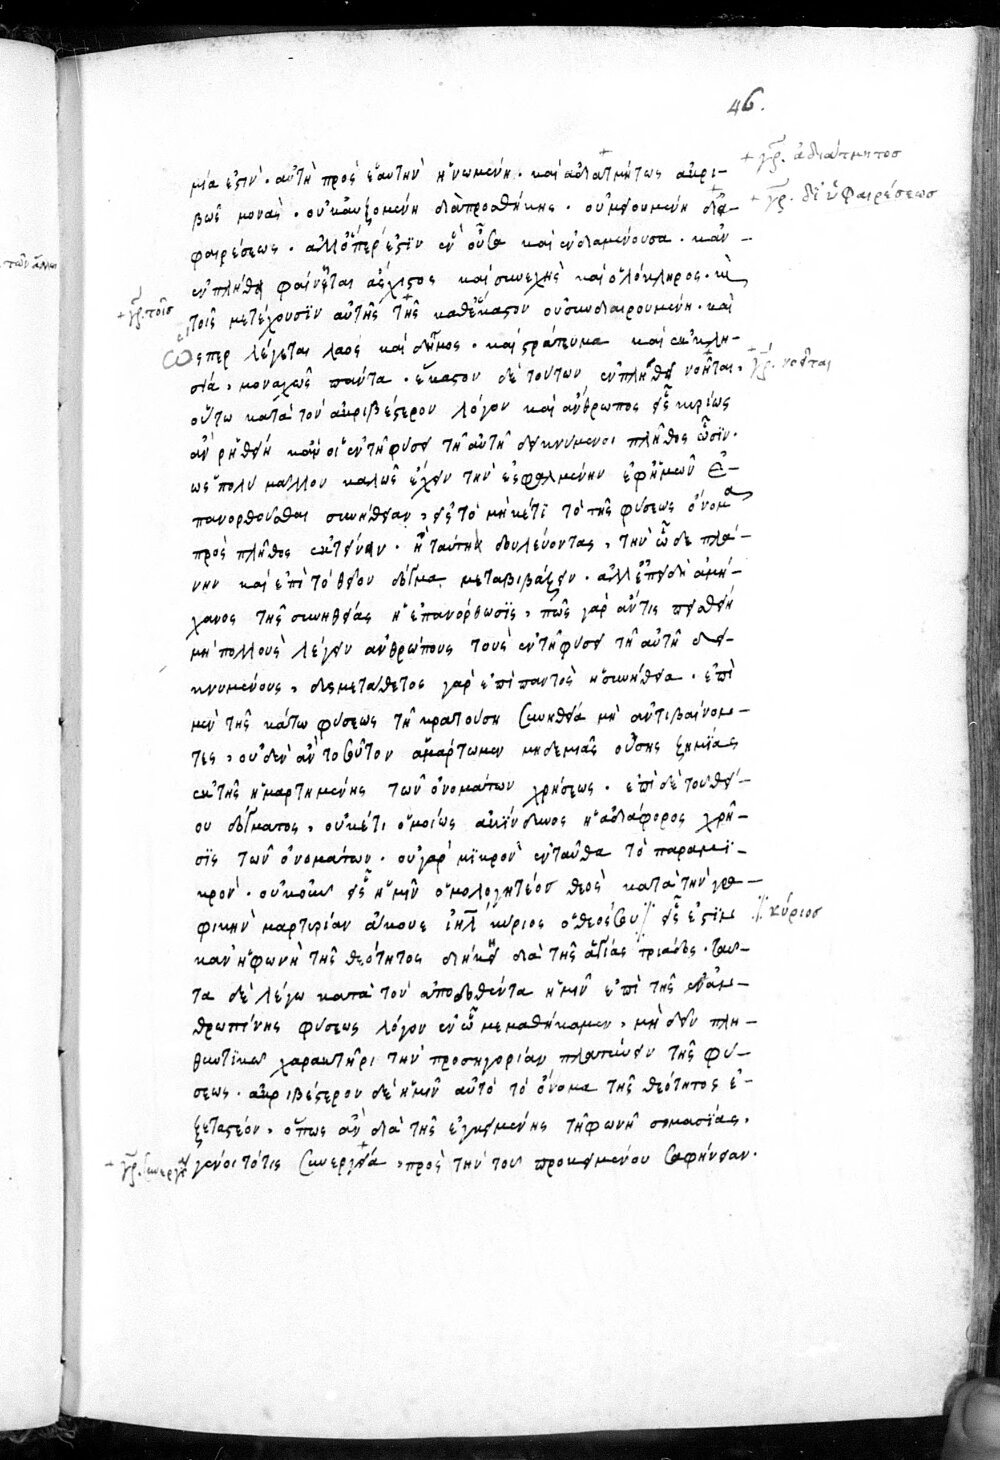 46.
μία ἐστὶν· αὐτὴ πρὸς ἑαυτὴν ἡνωμένη· καὶ ἀδιατμήτως ἀκρι-
+ γρ. ἀδιάτμητος
βῶς μονὰς· οὐκ αὐξομένη διὰ προσθήκης· οὐ μειουμένη δι᾽ ὑ-
+ γρ. δι᾽ ὑφαιρέσεως
φαιρέσεως· ἀλλ᾽ ὅπερ ἐστὶν ἓν οὖσα καὶ ἓν διαμένουσα· κἂν
ἐν πλήθει φαίνεται ἄσχιστος καὶ συνεχὴς καὶ ὁλόκληρος· καὶ
+ γρ. τοῖς
τοῖς μετέχουσιν αὐτῆς τῆς καθέκαστον οὐ συνδιαιρουμένη· καὶ
ὥσπερ λέγεται λαὸς καὶ δῆμος· καὶ στράτευμα καὶ ἐκκλη-
σία, μοναχῶς πάντα· ἕκαστον δὲ τούτων ἐν πλήθει νοῆται,
+ γρ. νοεῖται
οὕτω κατὰ τὸν ἀκριβέστερον λόγον καὶ ἄνθρωπος εἷς κυρίως
ἂν ῥηθείη κἂν οἱ ἐν τῇ φύσει τῇ αὐτῇ δεικνύμενοι πλῆθος ὦσιν·
ὡς πολὺ μᾶλλον καλῶς ἔχειν τὴν ἐσφαλμένην ἐφ᾽ ἡμῶν ἐ-
πανορθοῦσθαι συνήθειαν, εἰς τὸ μηκέτι τὸ τῆς φύσεως ὄνομα
πρὸς πλῆθος ἐκτείνειν· ἢ ταύτῃ δουλεύοντας, τὴν ὧδε πλά-
νην καὶ ἐπὶ τὸ θεῖον δόγμα μεταβιβάζειν· ἀλλ᾽ ἐπειδὴ ἀμή-
χανος τῆς συνηθείας ἡ ἐπανόρθωσις, πῶς γὰρ ἄν τις πεισθείη
μὴ πολλοὺς λέγειν ἀνθρώπους τοὺς ἐν τῇ φύσει τῇ αὐτῇ δει-
κνυμένους, δυσμετάθετος γὰρ ἐπὶ παντὸς ἡ συνήθεια· ἐπὶ
μὲν τῆς κάτω φύσεως τῇ κρατούσῃ συνηθείᾳ μὴ ἀντιβαίνον-
τες, οὐδὲν ἂν τοσοῦτον ἁμάρτωμεν μηδεμιᾶς οὔσης ζημίας
ἐκ τῆς ἡμαρτημένης τῶν ὀνομάτων χρήσεως· ἐπὶ δὲ τοῦ θεί-
ου δόγματος, οὐκέτι ὁμοίως ἀκίνδυνος ἡ ἀδιάφορος χρῆ-
σις τῶν ὀνομάτων· οὐ γὰρ μικρὸν ἐνταῦθα τὸ παραμι-
κρὸν· οὐκοῦν εἷς ἡμῖν ὁμολογητέος θεὸς κατὰ τὴν γρα-
φικὴν μαρτυρίαν ἄκουε ἰηλ κύριος ὁ θεός σου // εἷς ἐστὶν
// κύριος
κἂν ἡ φωνὴ τῆς θεότητος διήκῃ διὰ τῆς ἁγίας τριάδος· ταῦ-
τα δὲ λέγω κατὰ τὸν ἀποδοθέντα ἡμῖν ἐπὶ τῆς ἀν-
θρωπίνης φύσεως λόγον ἐν ᾧ μεμαθήκαμεν, μὴ δεῖν πλη-
θυντικῷ χαρακτῆρι τὴν προσηγορίαν πλατύνειν τῆς φύ-
σεως· ἀκριβέστερον δὲ ἡμῖν αὐτὸ τὸ ὄνομα τῆς θεότητος ἐ-
ξεταστέον, ὅπως ἂν διὰ τῆς ἐγκειμένης τῇ φωνῇ σημασίας,
+ γρ. συνεργία
γένοιτό τις συνεργεία, πρὸς τὴν τοῦ προκειμένου σαφήνειαν.